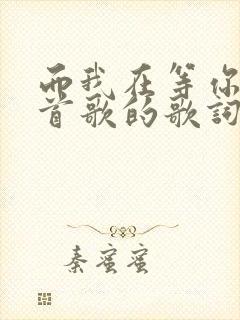 而我在等你
首歌的歌词
秦蜜蜜